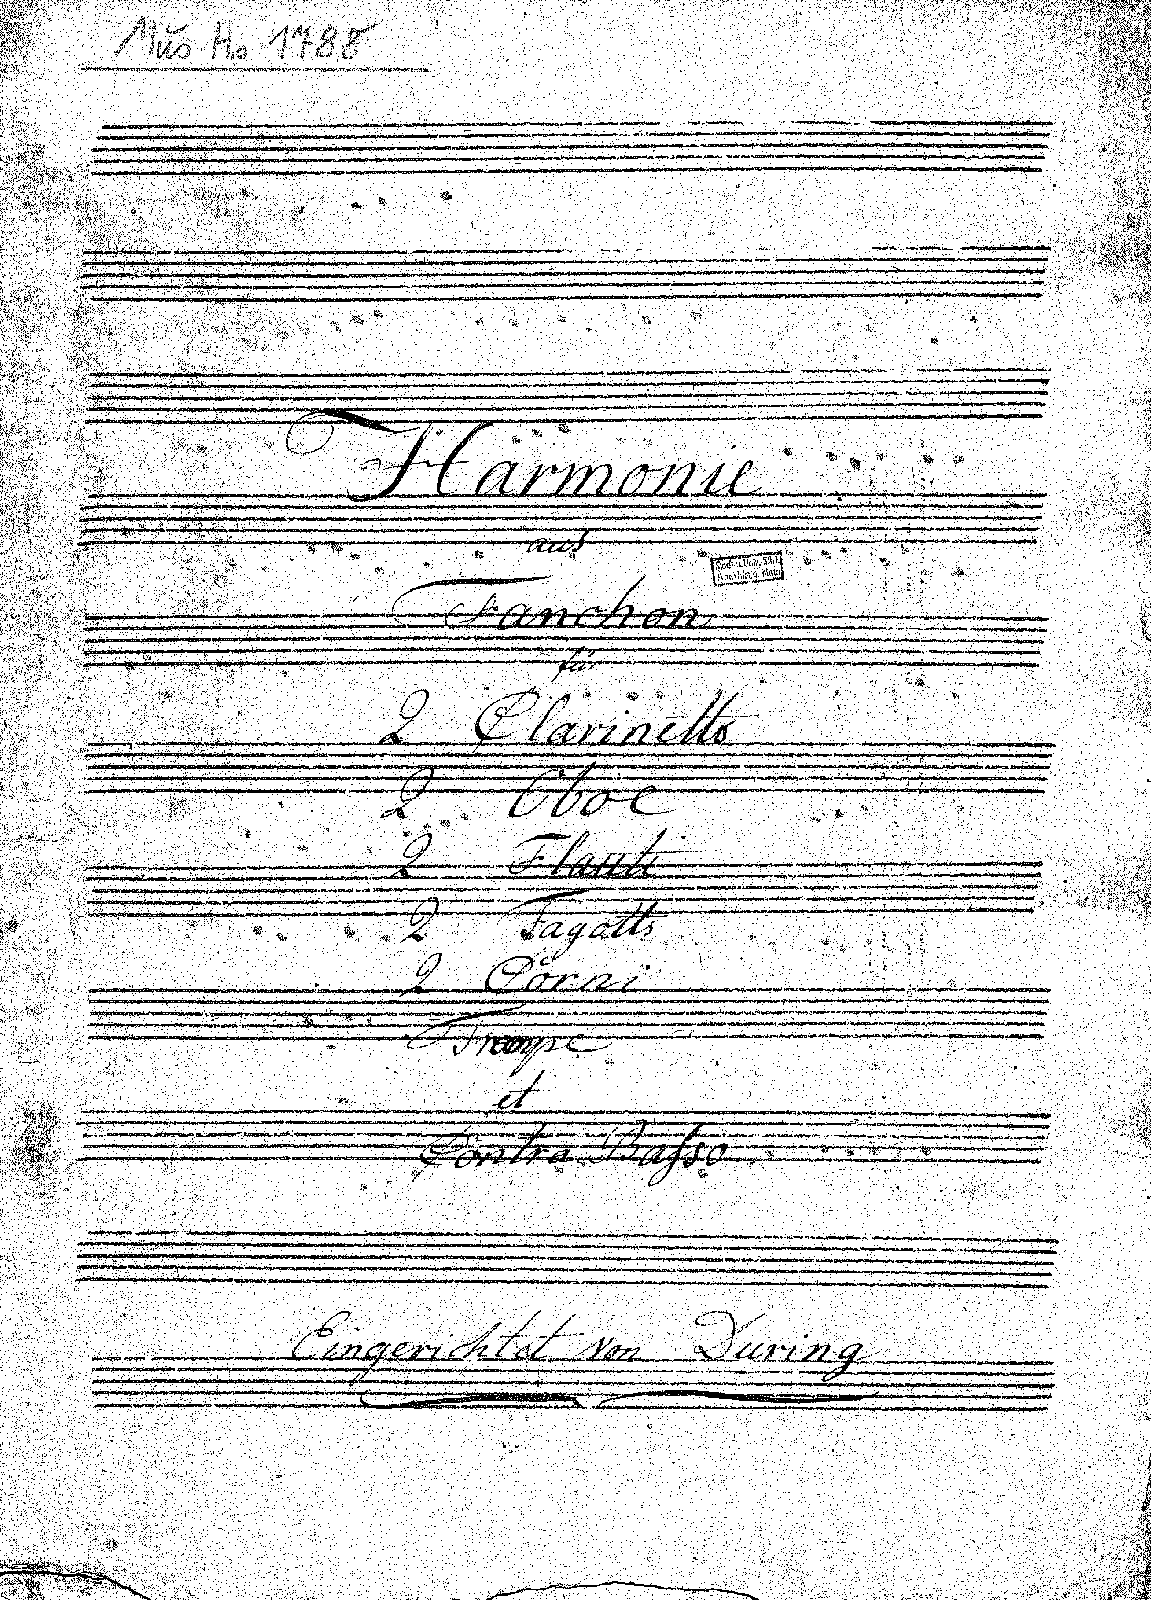 Mus Hs 1788
Harmonie
aus
Fanchon
für
2 Clarinetts
2 Oboe
2 Flauti
2 Fagatts
2 Corni
et
Contra Basso
Eingerichtet von Düring